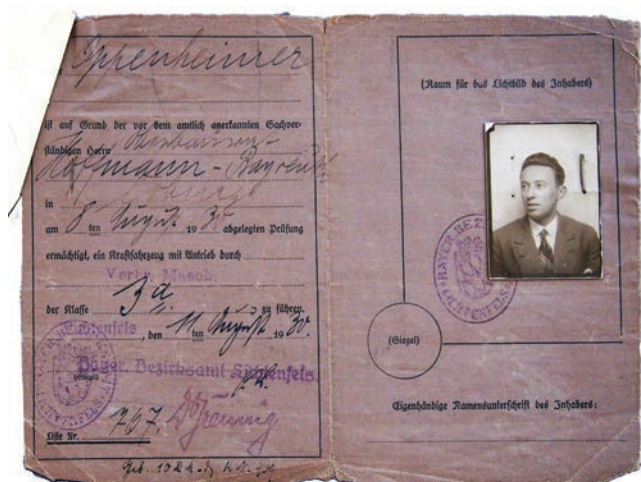 Oppenheimer
ist auf Grund der vor dem amtlich anerkannten Sachver-
ständigen Herrn
Hoffmann - Bayreuth
in
am 8 ten August 1930 abgelegten Prüfung
ermächtigt, ein Kraftfahrzeug mit Antrieb durch
Verbr. Masch.
der Klasse 3a zu führen.
Lichtenfels, den 11 ten August 1930.
Bayer. Bezirksamt Lichtenfels.
Liste Nr. 767.
(Raum für das Lichtbild des Inhabers)
BAYER. BEZ
LICHTENFELS
(Siegel)
Eigenhändige Namensunterschrift des Inhabers: